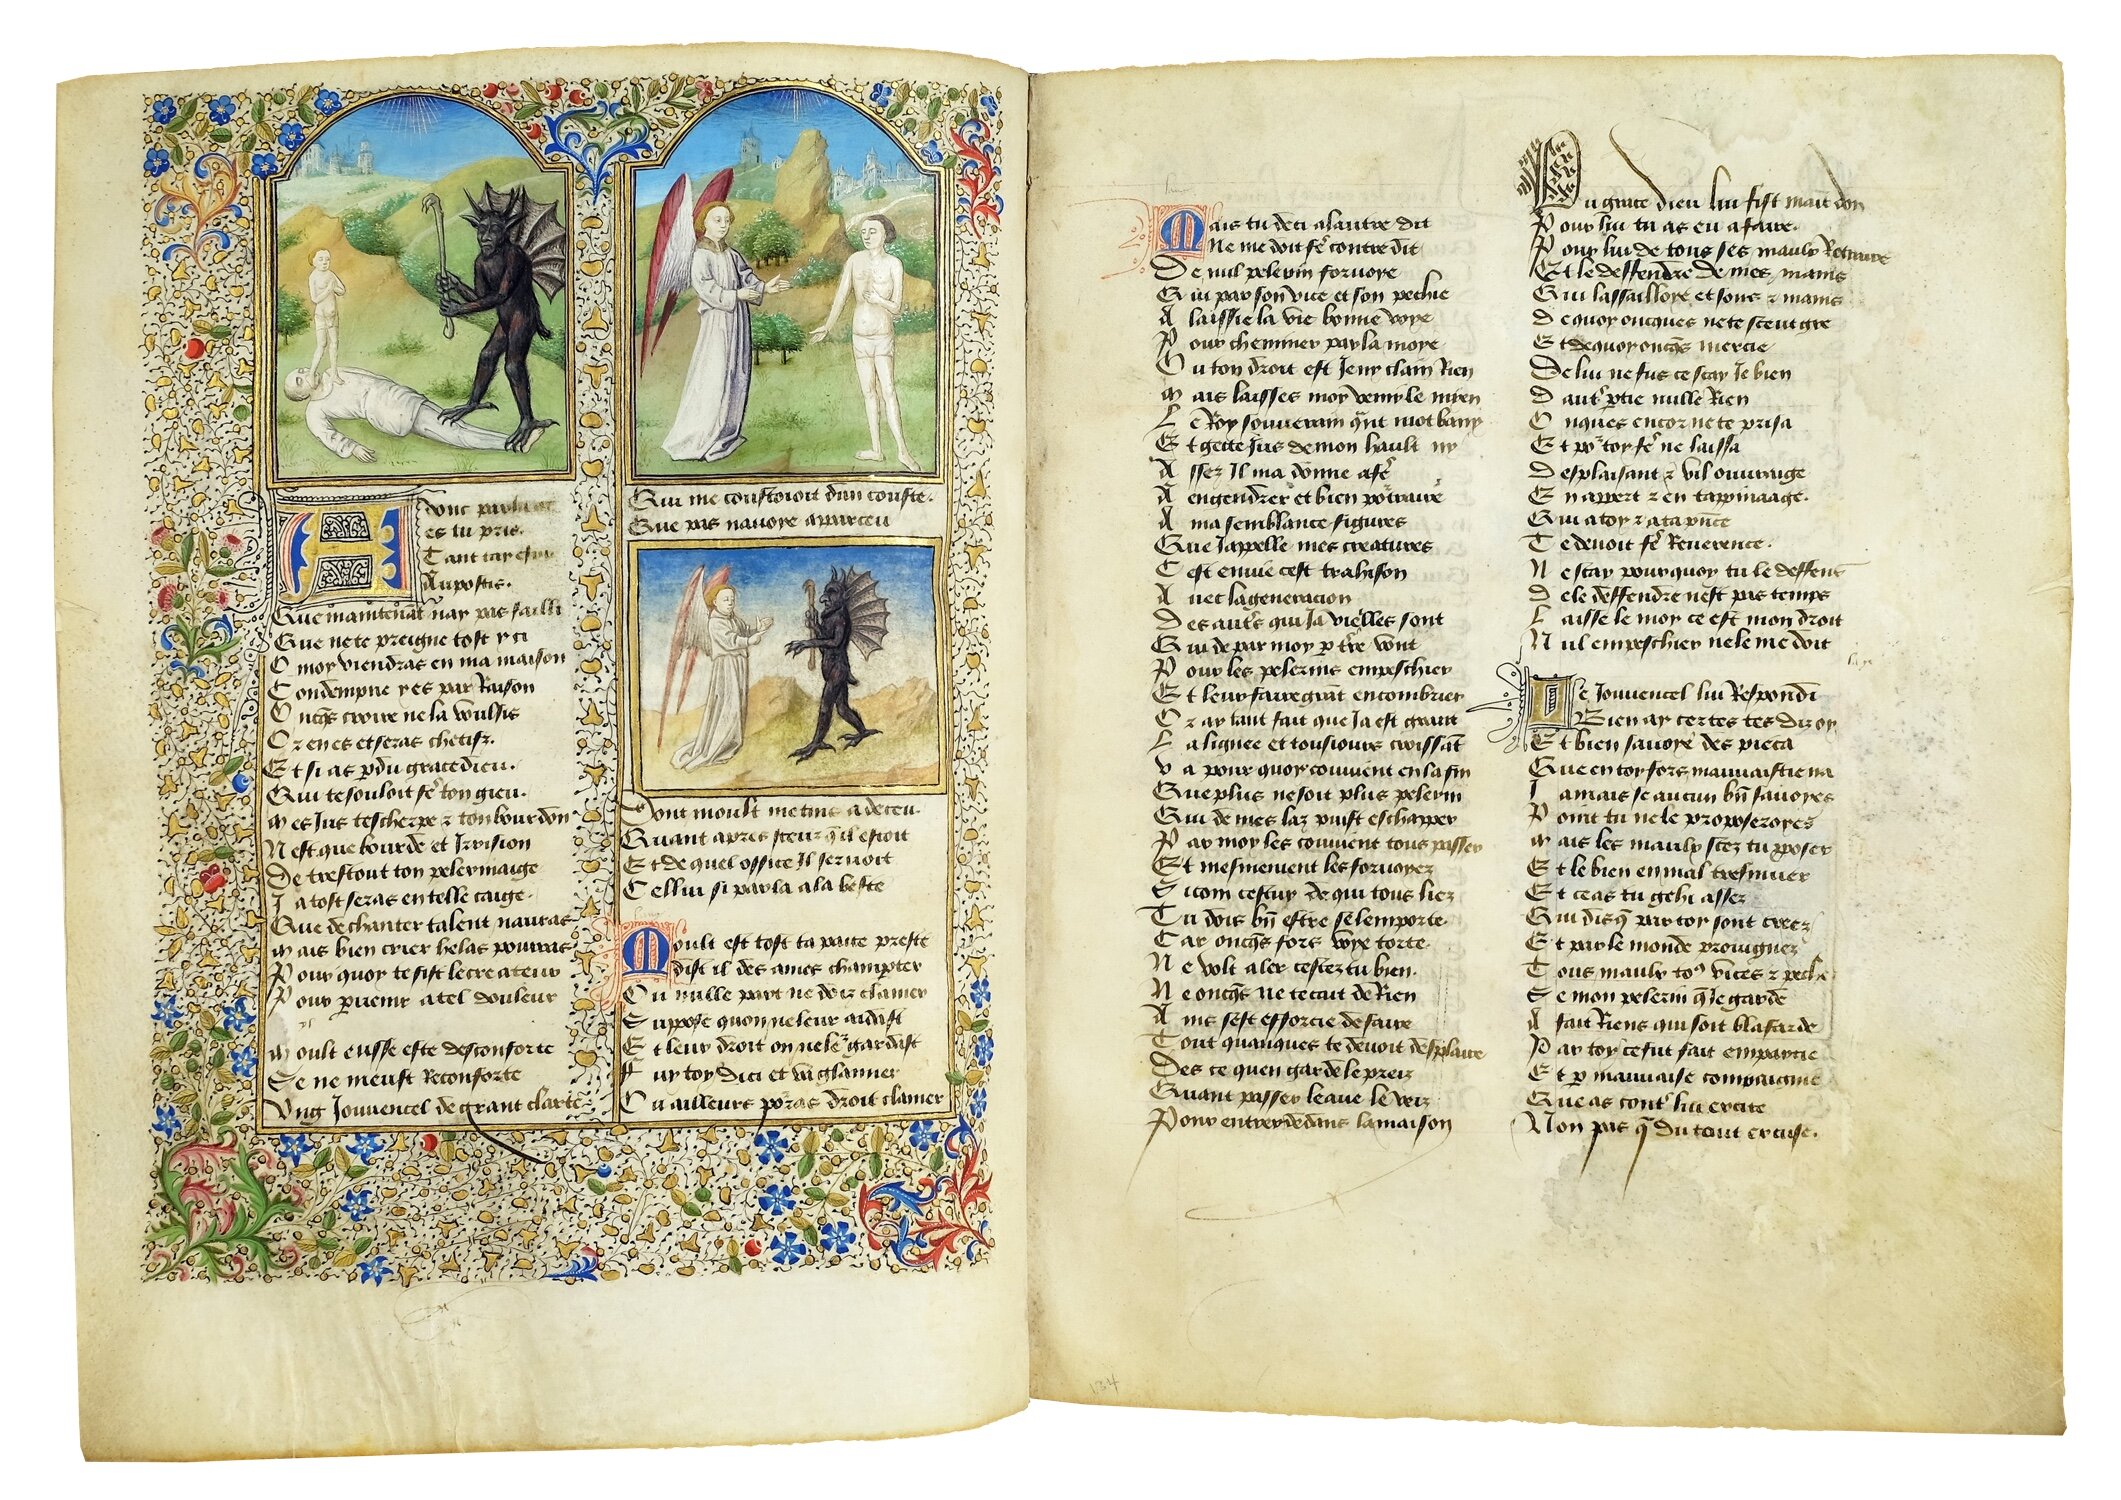 donc
es tu pris.
Tant tay
Au postis.
Que maintenāt nay pas failli
Que ne te preigne tost yci
O moy viendras en ma maison
Condempne yes par Raison
Onq̄s croire ne la voulsis
Or en es et seras chetif.
Et si as ꝑdu grace dieu.
Qui te souloit fer̄ ton gieu.
Mes Jus tescherpe ⁊ ton bourdon
Nest que bourde et Irrision
De trestout ton pelermaige
Ja tost seras en telle caige.
Que de chanter talent nauras
Mais bien crier helas pourras
Pour quoy te fist le createur
Pour ꝑuenir a tel douleur
Moult eusse este desconforte
Se ne meust Reconforte
Ung Jouuencel de grant clarte
Qui me coustoioit dun couste.
Que pas nauoye aparceu
Dont moult me tins a deceu.
Quant apres sceuz q̄ il estoit
Et de quel office Il seruoit
Cellui si parla a la beste
Moult est tost ta pate preste
dist il des ames champter
Ou nulle part ne doiz clamer
Suppose quon ne leur aidast
Et leur droit on ne leˢ gardast
Fuy toy dici et va glanner
Ou ailleurs porras droit clamer
Mais tu deci a lautre dit
Ne me doit fer̄ contredit
De nul pelerin foruoye
Qui par son vice et son pechie
A laissie la vie bonne voye
Pour cheminer par la moye
Ou ton droit est Jeny claim Rien
Mais laisses moy venir le mien
Le Roy souuerain q̄nt mot bany
Et gette Jus de mon hault ny
Assez Il ma donne a fer̄
A engendrer et bien portraire
A ma semblance figures
Que Jappelle mes creatures
Cest enuie cest trahison
Auec la generacion
Des autr̄s qui Ja vielles sont
Qui de par moy ꝑ terre vont
Pour les pelerins empeschier
Et leur faire grāt encombrier
Or ay tant fait que Ja est grant
La lignee et tousiours croissāt
Va pour quoy couuient en la fin
Que plus ne soit plus pelerin
Qui de mes laz puist eschapper
Par moy les couuient tous passer
Et mesmement les foruoyez
Si com cestuy de qui tous liez
Tu dois bn̄ estre se lemporte.
Car onq̄s fors voye torte.
Ne volt aler cestez tu bien.
Ne onq̄s ne te creut de Rien
Ains sest efforcie de faire
Tout quanques te deuoit desplaire
Des ce quen garde le preiz
Quant passer leaue le veiz
Pour entrer dedans la maison
Du grace dieu lui fist maīt don
Pour lui tu as eu a faire.
Pour lui de tous ses maulx Retraire
Et le deffendre de mes mains
Qui lassailloye et soirs ⁊ mains
De quoy oncques ne te sceut gre
Et de quoy onq̄s mercie
De lui ne fus ce scay Je bien
Dautr̄ ꝑtie nulle Rien
Onques encor ne te prisa
Et por toy fer̄ ne laissa
Desplaisant ⁊ vil ouuraige
En appert ⁊ en tappinaage.
Qui a toy ⁊ a ta pn̄ce
Te deuoit fer̄ Reuerence.
Ne scay pourquoy tu le deffens
De le deffendre nest pas temps
Laisse le moy ce est mon droit
Nul empeschier ne le me doit
Le Jouuencel lui Respondi
Bien ay certes tes diz oy
Et bien sauoye des pieca
Que en toy fors mauuaistie na
Jamais se aucun bn̄ sauoyes
Point tu ne le proposeroyes
Mais les maulx scez tu ꝓposer
Et le bien en mal tresmuer
Et ce as tu gehi assez
Qui dis q̄ par toy sont creez
Et par le monde prouignez
Tous maulx toꝰ vices ⁊ peche
Se mon pelerin q̄ Je garde
A fait Riens qui soit blafarde
Par toy ce fut fait en partie
Et ꝑ mauuaise compaignie
Que as contr̄ lui excite
Non pas q̄ du tout excuse.
134